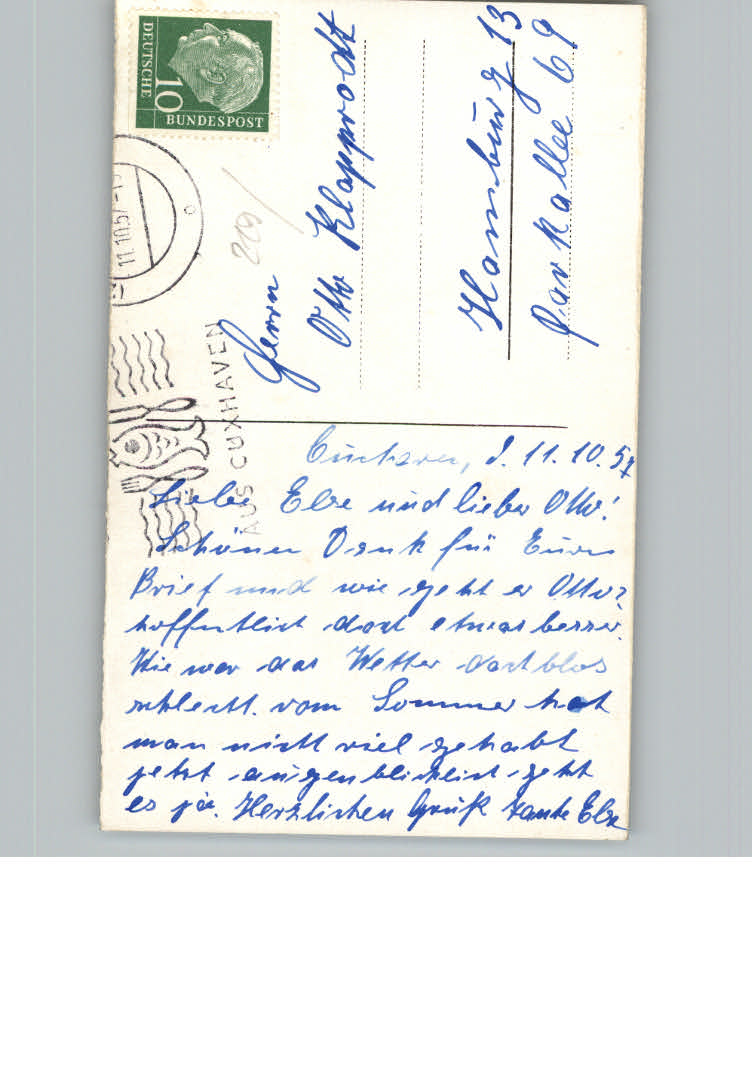 DEUTSCHE
10
BUNDESPOST
11.10.57
AUS CUXHAVEN
219
Herrn
Otto Klapprodt
Hamburg 13
Parkallee 69
Cuxhaven, d. 11.10.57
Liebe Else und lieber Otto!
Schönen Dank für Euren
Brief und wie geht es Otto?
hoffentlich doch etwas besser.
Wie war das Wetter doch blos
schlecht. vom Sommer hat
man nicht viel gehabt
jetzt augenblicklich geht
es ja. Herzlichen Gruß Tante Else